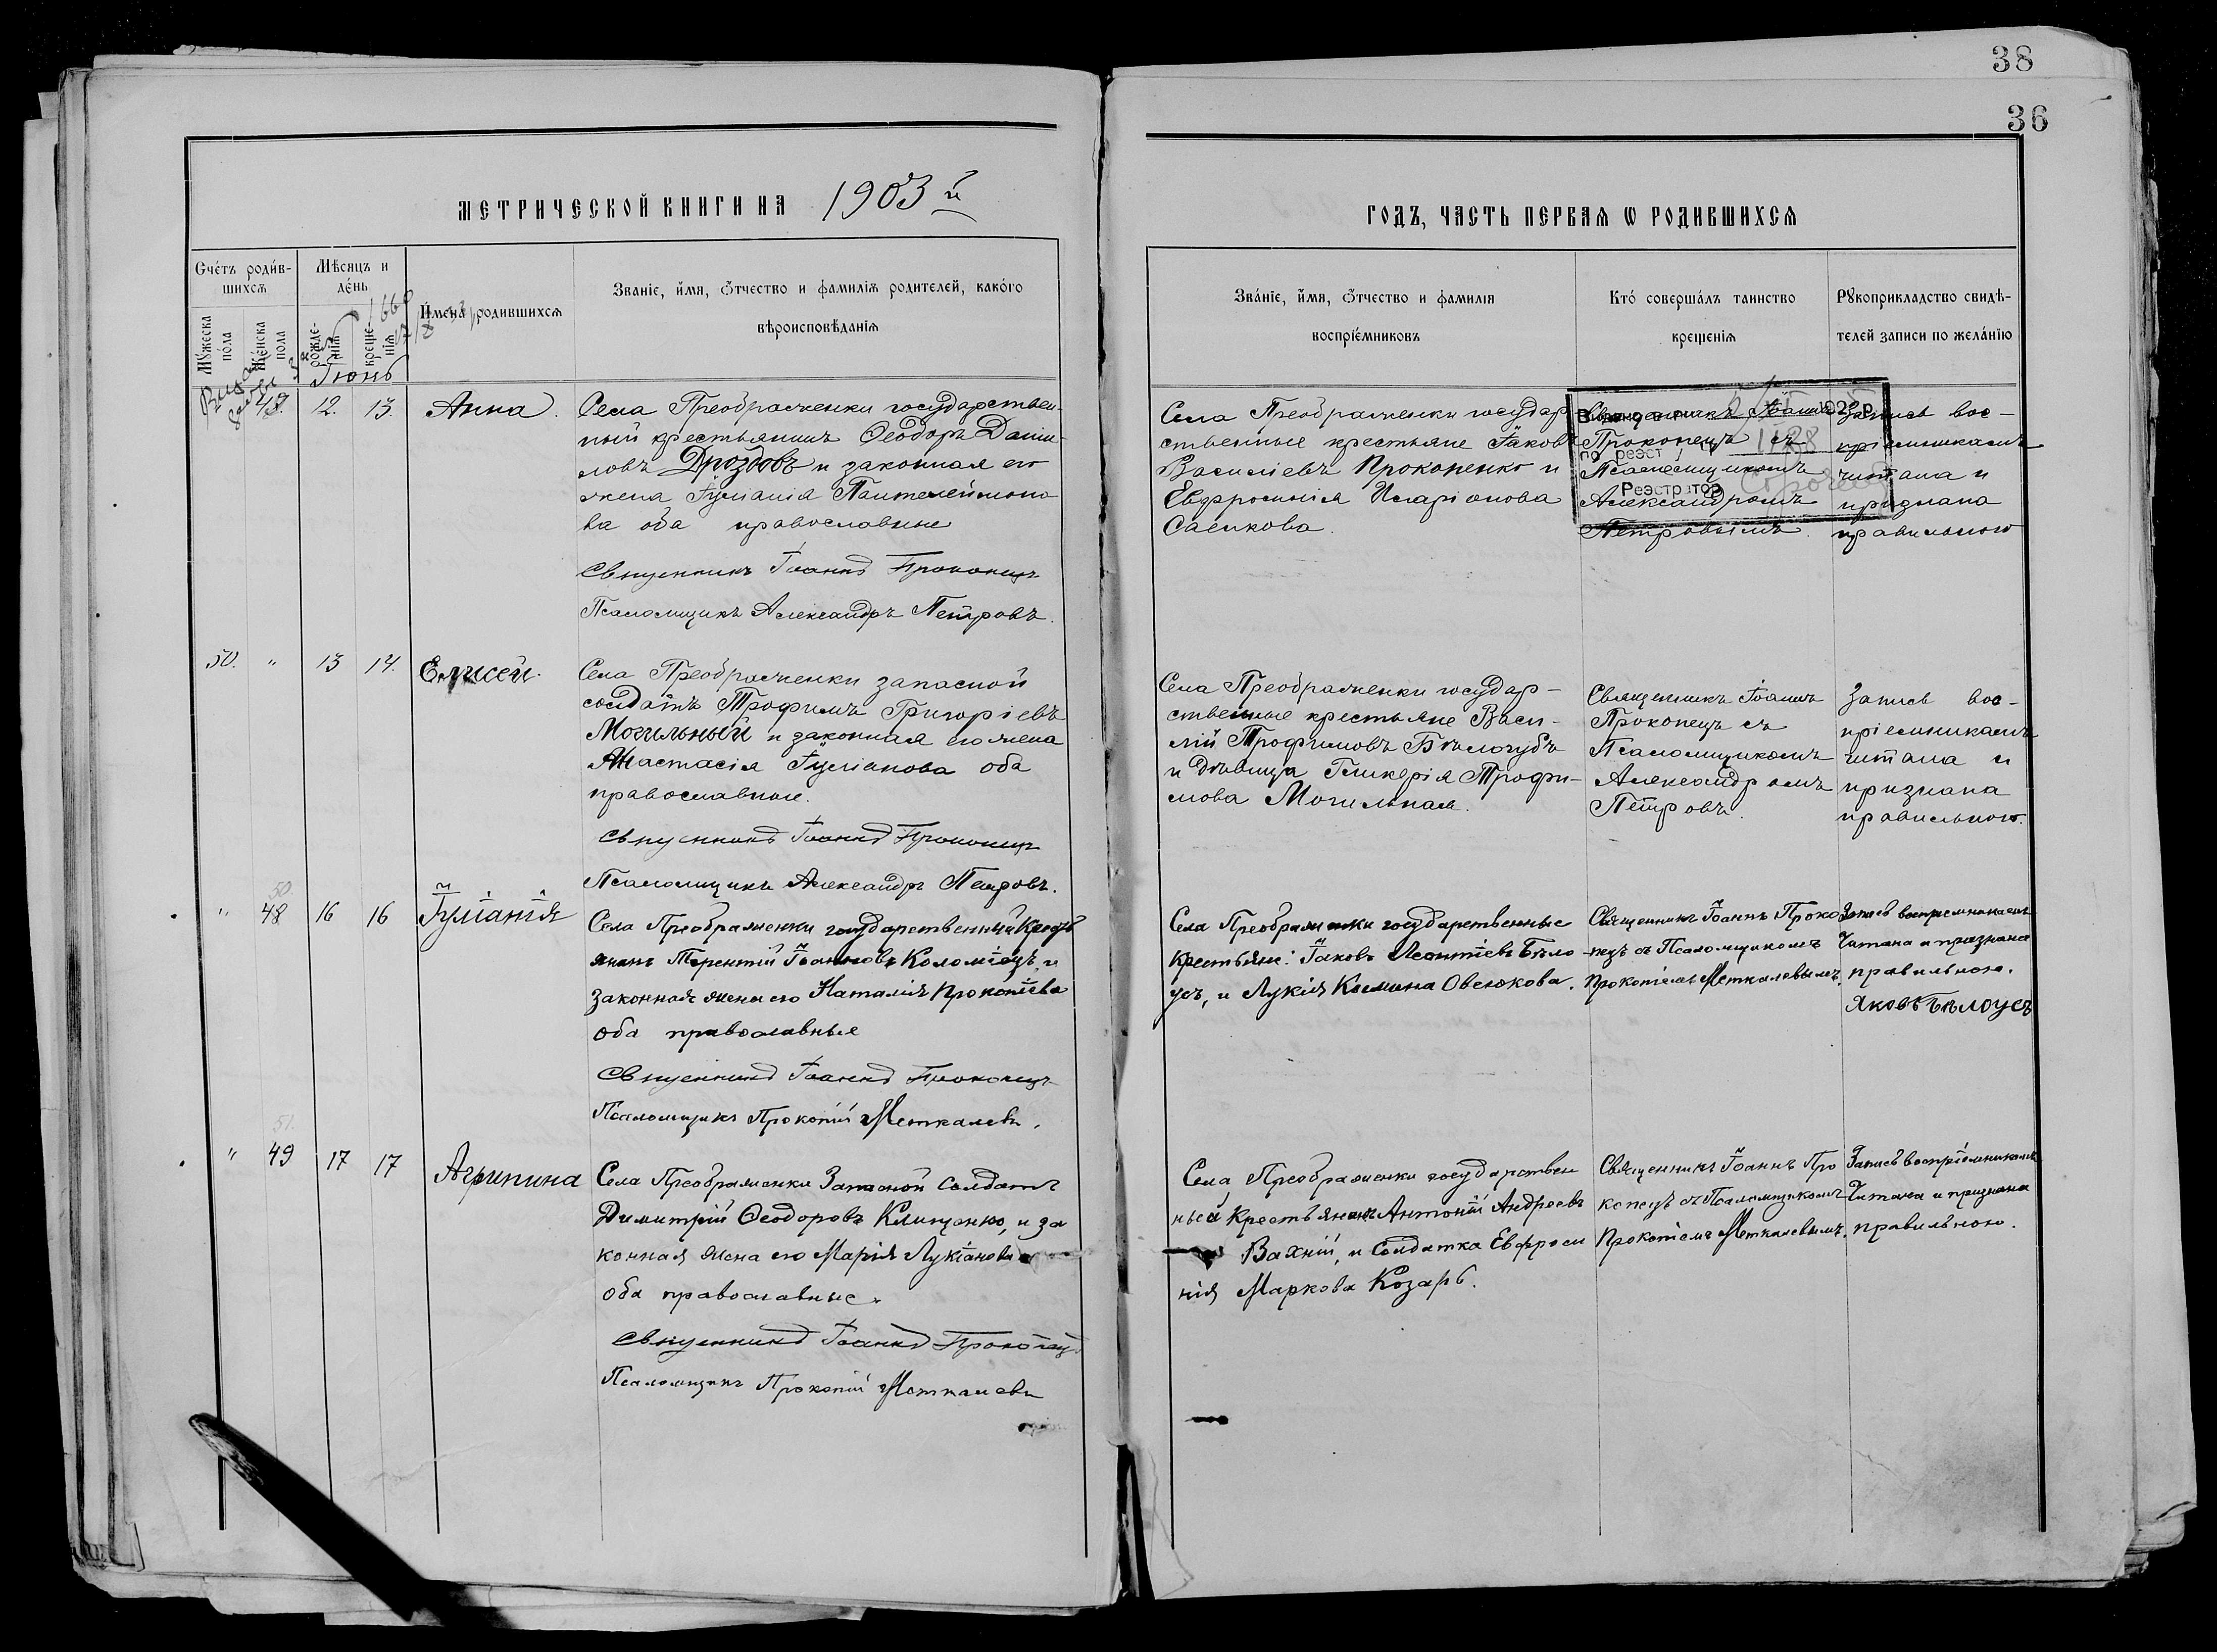 38
36
МЕТРИЧЕСКОЙ КНИГИ НА 1903 й
ГОДЪ, ЧАСТЬ ПЕРВАЯ Ѡ РОДИВШИХСЯ
Счетъ родив-
шихся
Мѣсяцъ и
день
Мужеска
пола
Женска
пола
рожде-
нія
креще-
нія
Имена родившихся
Званіе, имя, ѻтчество и фамилія родителей, какого
вѣроисповѣданія
Званіе, имя, ѻтчество и фамилія
воспріемниковъ
Кто совершалъ таинство
крещенія
Рукоприкладство свидѣ-
телей записи по желанію
Іюнь
12. 13. Анна.
Села Преображенки государствен-
ный крестьянинъ Ѳеодоръ Дани-
ловъ Дроздовъ и законная его
жена Іуліанія Пантелеймоно
ва оба православные
Священникъ Іоаннъ Прокопецъ
Псаломщикъ Александръ Петровъ.
Села Преображенки государ
ственные крестьяне Іаковъ
Василіевъ Прокопенко и
Евфросинія Иларіонова
Саенкова.
Священникъ Іоаннъ
Прокопецъ съ
Псаломщикомъ
Александромъ
Петровымъ.
Запись вос-
пріемникамъ
читана и
признана
правильною
по реєст
1188
Реєстратор
50. " 13 14. Елисей.
Села Преображенки запасной
солдатъ Трофимъ Григоріевъ
Могильный и законная его жена
Анастасія Іуліанова оба
православные.
Священникъ Іоаннъ Прокопецъ
Псаломщикъ Александръ Петровъ.
Села Преображенки государ-
ственные крестьяне Васи-
лій Трофимовъ Бѣлогубъ
и дѣвица Гликерія Трофи-
мова Могильная.
Священникъ Іоаннъ
Прокопецъ съ
Псаломщикомъ
Александромъ
Петровъ.
Запись вос-
пріемникамъ
читана и
признана
правильною.
50.
" 48 16 16 Іуліанія
Села Преображенки государственный Кресть
янинъ Терентій Іоанновъ Коломіецъ, и
законная жена его Наталія Прокопіева
оба православные
Священникъ Іоаннъ Прокопецъ
Псаломщикъ Прокопій Меткалевъ.
Села Преображенки государственные
Крестьяне: Іаковъ Леонтіевъ Бѣло
усъ, и Лукія Космина Овсюкова.
Священникъ Іоаннъ Проко
пецъ съ Псаломщикомъ
Прокопіемъ Меткалевымъ.
Запись воспріемникамъ
Читана и признана
правильною.
Яковъ Бѣлоусъ
51.
" 49 17 17 Агрипина
Села Преображенки Запасной Солдатъ
Димитрій Ѳеодоровъ Клищенко, и за
конная жена его Марія Лукіанова
оба православные.
Священникъ Іоаннъ Прокопецъ
Псаломщикъ Прокопій Меткалевъ
Села Преображенки государствен
ный Крестьянинъ Антоній Андреевъ
Вахній, и Солдатка Евфроси
нія Маркова Козарь.
Священникъ Іоаннъ Про
копецъ съ Псаломщикомъ
Прокопіемъ Меткалевымъ.
Запись воспріемникамъ
Читана и признана
правильною.